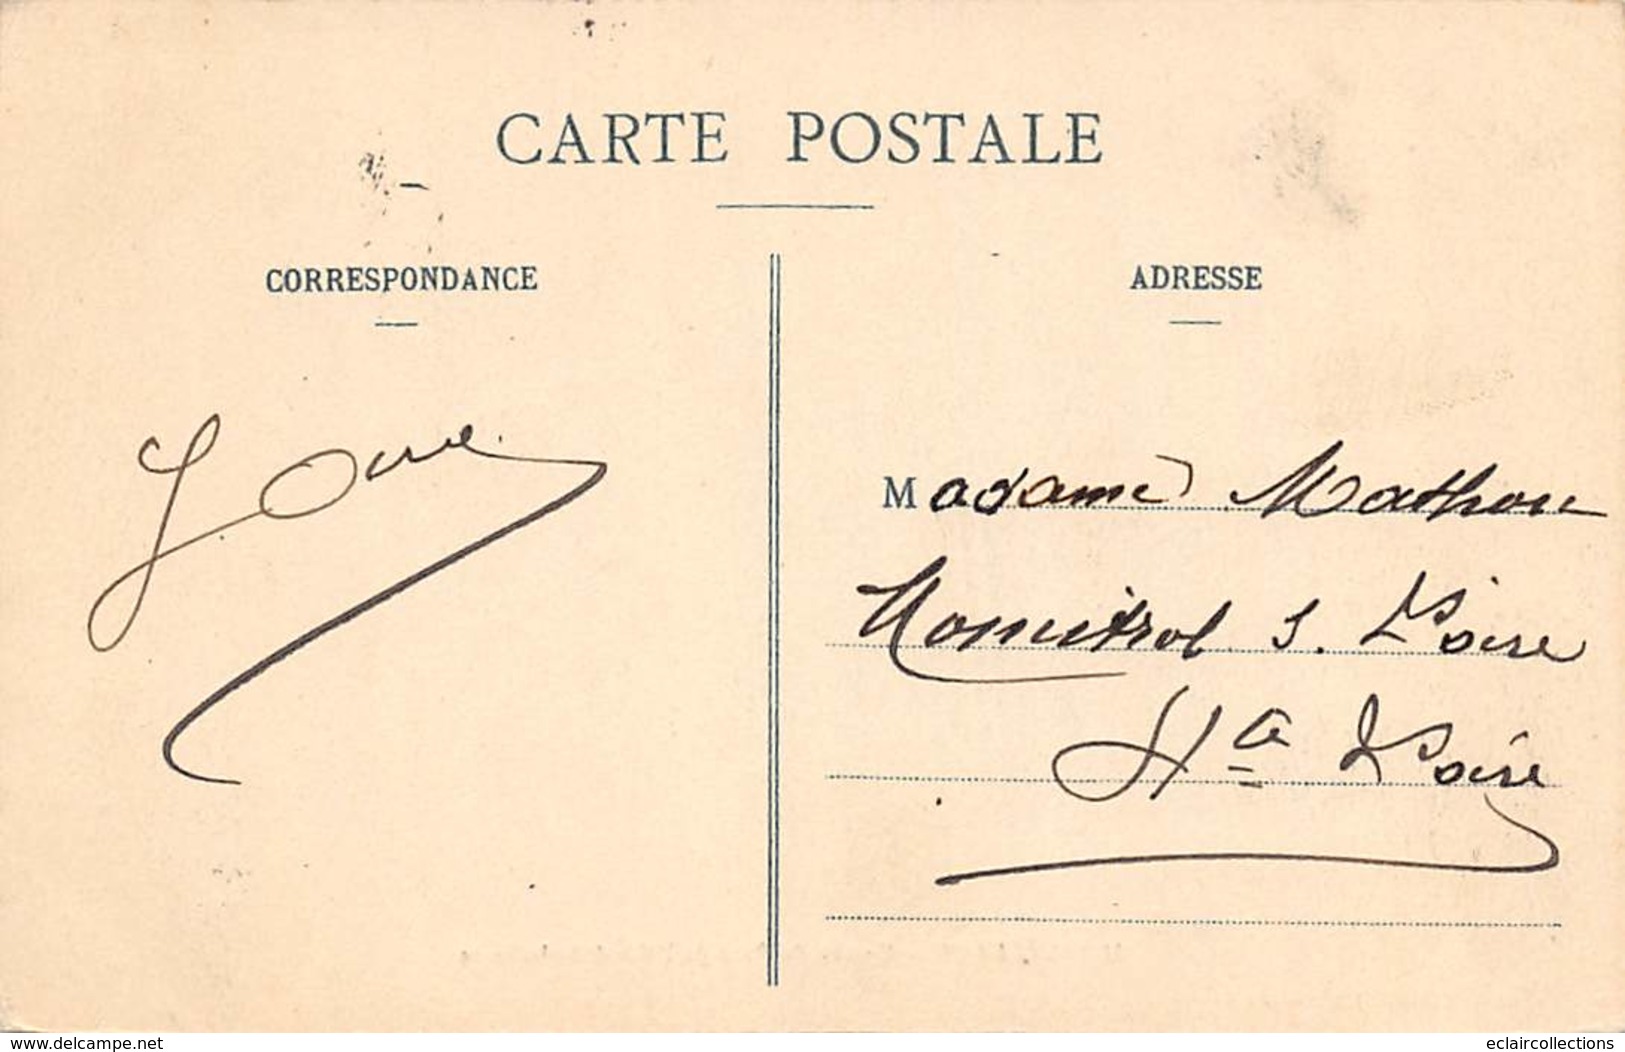 CARTE POSTALE
CORRESPONDANCE
ADRESSE
Madame Mathon
Monistrol s. Loire
Hte Loire
www.delcampe.net
eclaircollections